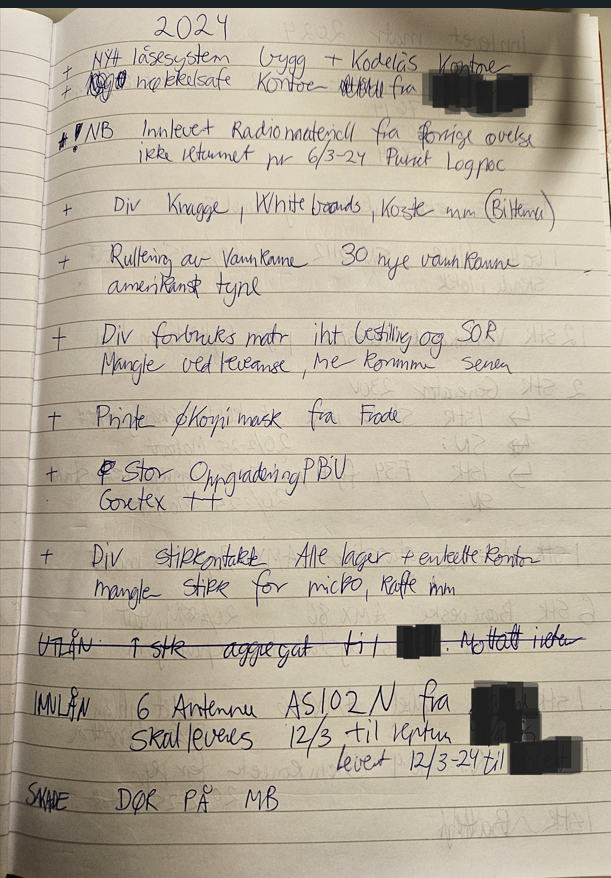 2024
+ NYtt låsesystem bygg + Kodelås Kontore
+ nøkkelsafe Kontor fra
! NB Innlevet Radiomateriell fra forrige øvelse
ikke returnet pr 6/3-24 Purret Logpoc
+ Div Knagge, Whiteboards, Koste mm (Biltema)
+ Rullering av Vannkanne 30 nye vannkanne
amerikansk type
+ Div forbruks matr iht bestilling og SOR
Mangle ved leveanse, me komme senere
+ Printe /Kopi mask fra Frode
+ Stor Oppgradering PBU
Goretex ++
+ Div stikkontakte Alle lager + enkelte kontor
mangle stikk for micro, kaffe mm
UTLÅN 1 stk aggregat til . Mottatt
INNLÅN 6 Antenne AS102N fra
Skal leveres 12/3 til
Levert 12/3-24 til
SKADE DØR PÅ MB